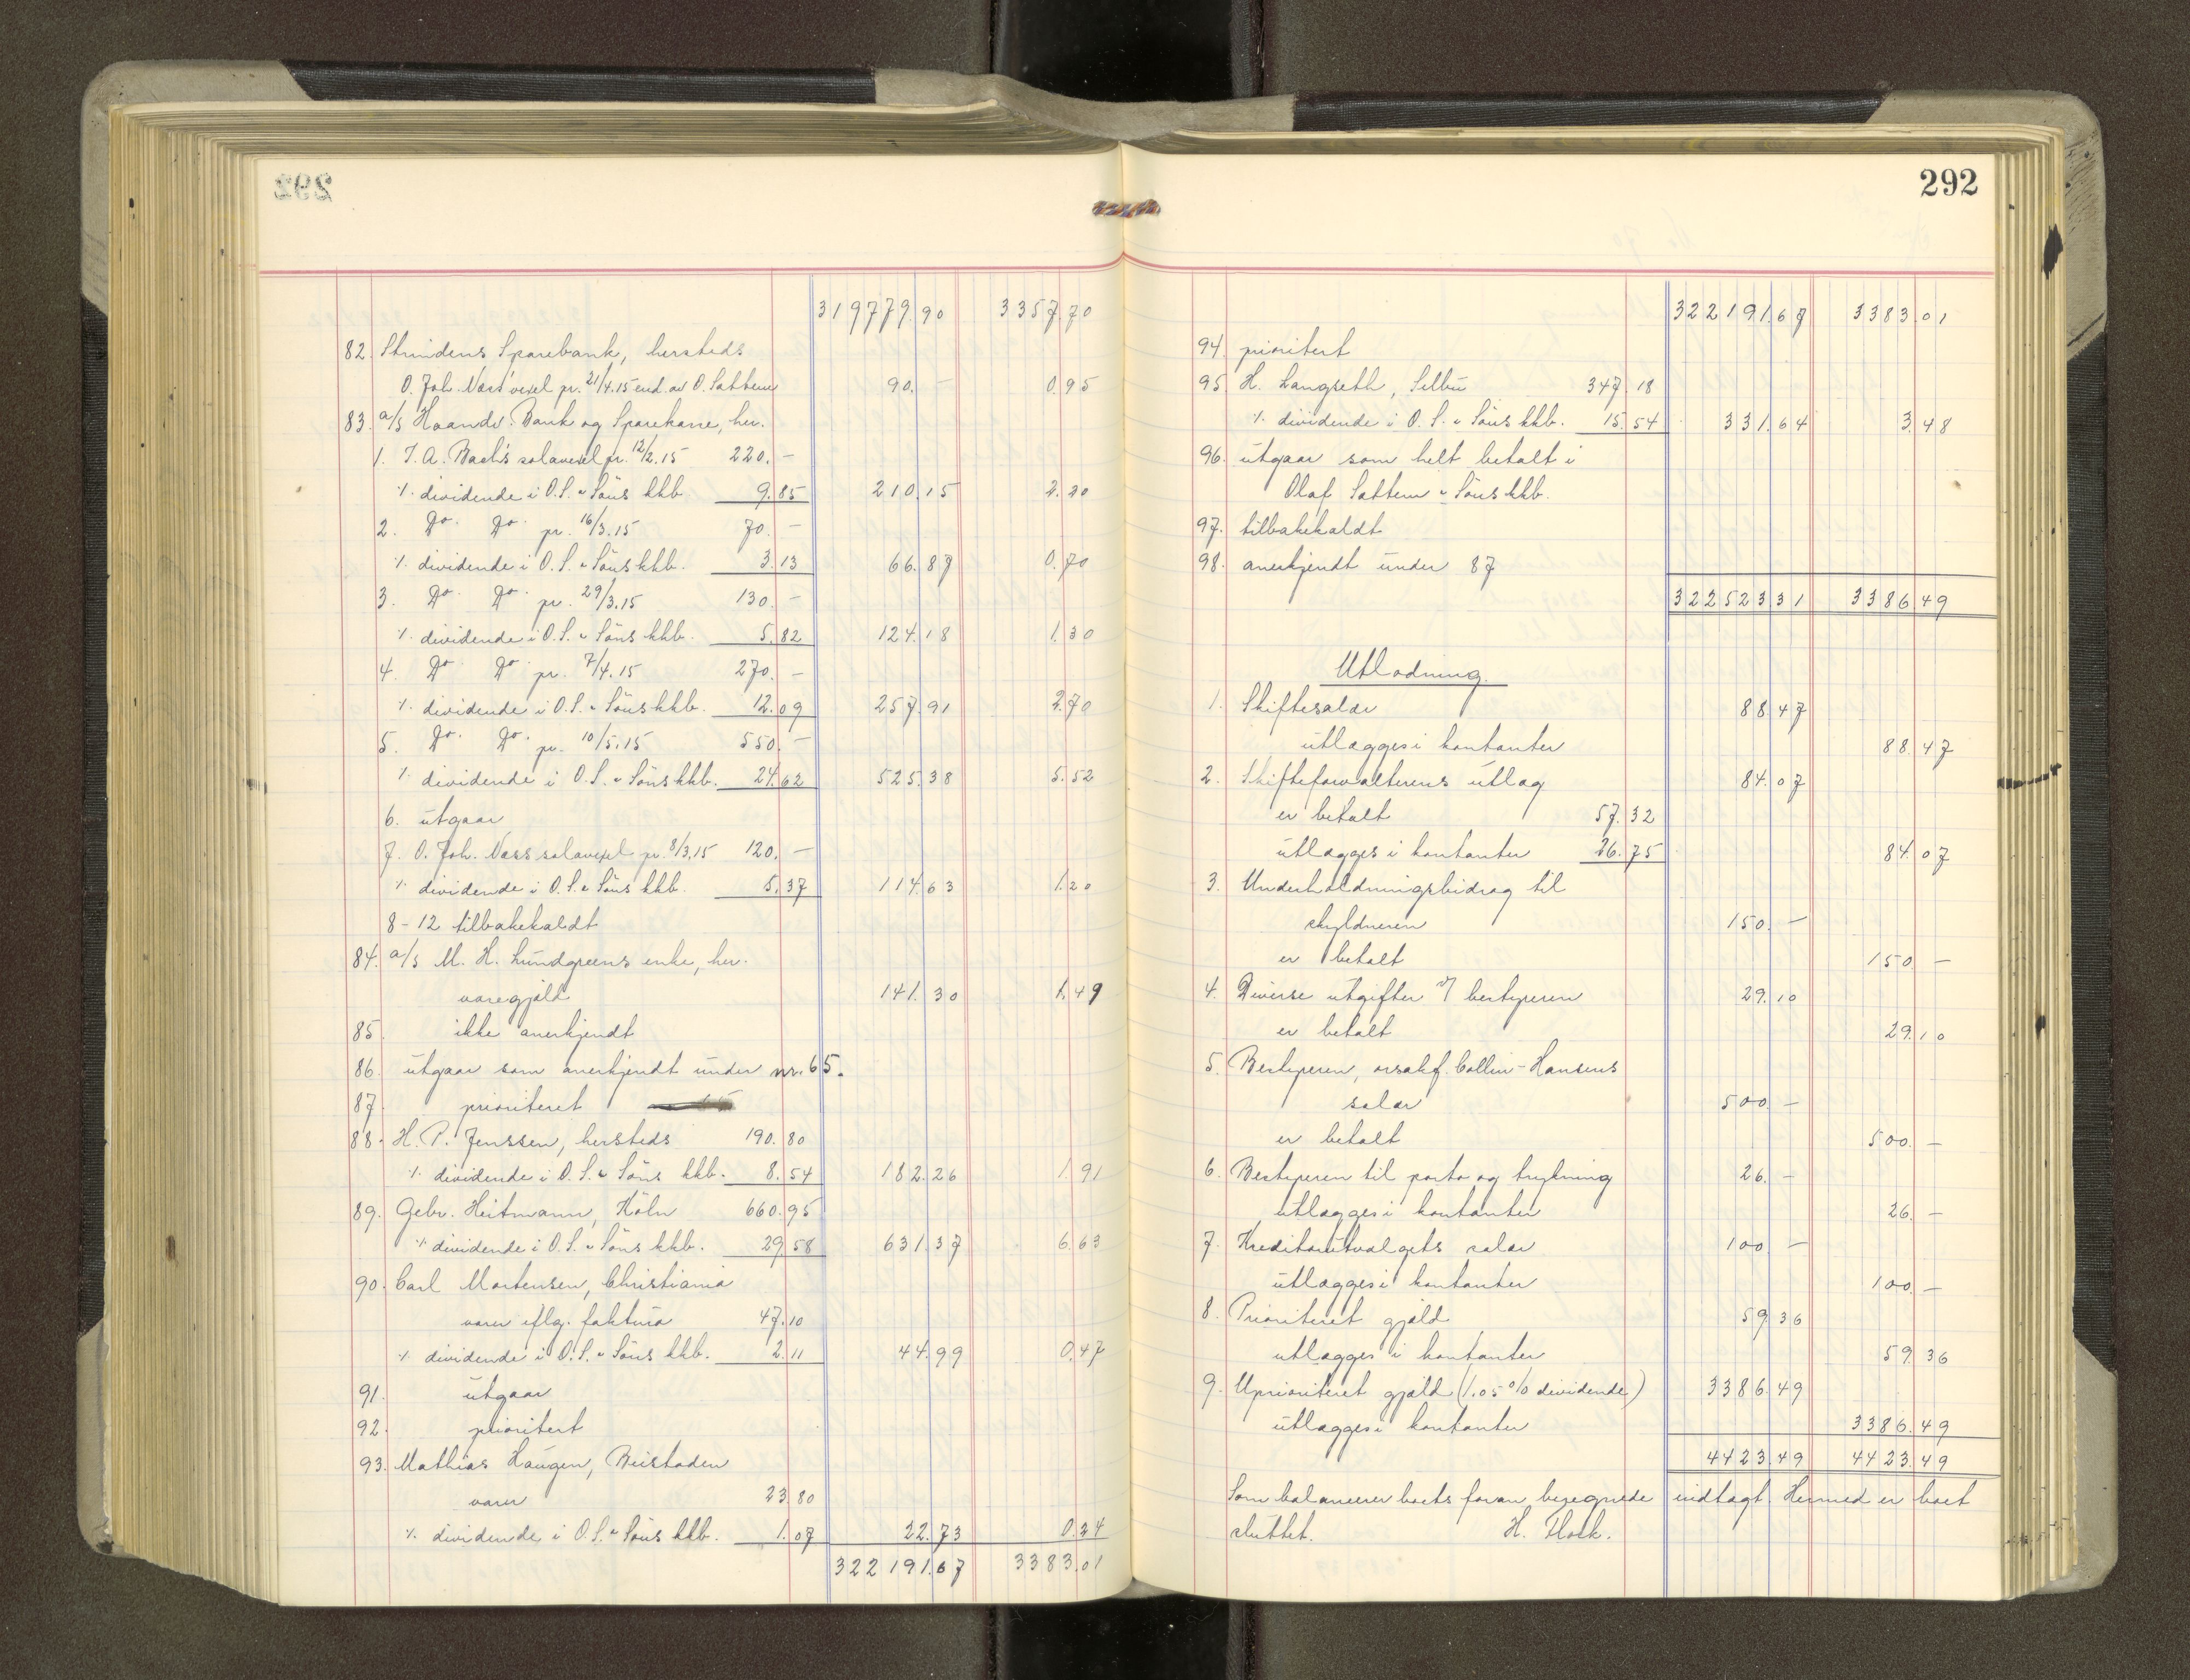 292
319779.90 3357.70
82. Strindens Sparebank, hersteds
O. Joh. Næss' vexel pr. 21/4.15 end. av O. Sattem 90.- 0.95
83. a/s Haandv. Bank og Sparekasse, her.
1. I. A. Bach's solavexel pr. 12/2.15 220.-
% dividende i O.S. & Söns kkb. 9.85 210.15 2.20
2. Do. Do. pr. 16/3.15 70.-
% dividende i O.S. & Söns kkb. 3.13 66.87 0.70
3. Do. Do. pr. 29/3.15 130.-
% dividende i O.S. & Söns kkb. 5.82 124.18 1.30
4. Do. Do. pr. 7/4.15 270.-
% dividende i O.S. & Söns kkb. 12.09 257.91 2.70
5. Do. Do. pr. 10/5.15 550.-
% dividende i O.S. & Söns kkb. 24.62 525.38 5.52
6. utgaar
7. O. Joh. Næss solavexel pr. 8/3.15 120.-
% dividende i O.S. & Söns kkb. 5.37 114.63 1.20
8-12 tilbakekaldt
84. a/s M. H. Lundgreens enke, her.
varegjæld 141.30 1.49
85. ikke anerkjendt
86. utgaar som anerkjendt under nr. 65.
87. prioriteret
88. H. P. Jenssen, hersteds 190.80
% dividende i O.S. & Söns kkb. 8.54 182.26 1.91
89. Gebr. Heitmann, Köln 660.95
% dividende i O.S. & Söns kkb. 29.58 631.37 6.63
90. Carl Mortensen, Christiania
varer iflg. faktura 47.10
% dividende i O.S. & Söns kkb. 2.11 44.99 0.47
91. utgaar
92. prioritert
93. Mathias Haugen, Beistaden
varer 23.80
% dividende i O.S. & Söns kkb. 1.07 22.73 0.24
322191.67 3383.01
292
322191.67 3383.01
94. prioritert
95. H. Langseth, Selbu 347.18
% dividende i O.S. & Söns kkb. 15.54 331.64 3.48
96. utgaar som helt betalt i
Olaf Sattem & Söns kkb.
97. tilbakekaldt
98. anerkjendt under 87
322523.31 3386.49
Utlodning.
1. Skiftesalær 88.47
utlægges i kontanter 88.47
2. Skifteforvalterens utlæg 84.07
er betalt 57.32
utlægges i kontanter 26.75 84.07
3. Underholdningsbidrag til
skyldneren 150.-
er betalt 150.-
4. Diverse utgifter v/ bestyreren 29.10
er betalt 29.10
5. Bestyreren, orsakf. Collin-Hansens
salær 500.-
er betalt 500.-
6. Bestyreren til porto og trykning 26.-
utlægges i kontanter 26.-
7. Kreditorutvalgets salær 100.-
utlægges i kontanter 100.-
8. Prioritert gjæld 59.36
utlægges i kontanter 59.36
9. Uprioriteret gjæld (1.05 % dividende) 3386.49
utlægges i kontanter 3386.49
4423.49 4423.49
Som balancerer boets foran beregnede indtægt. Hermed er boet
sluttet. H. Flock.